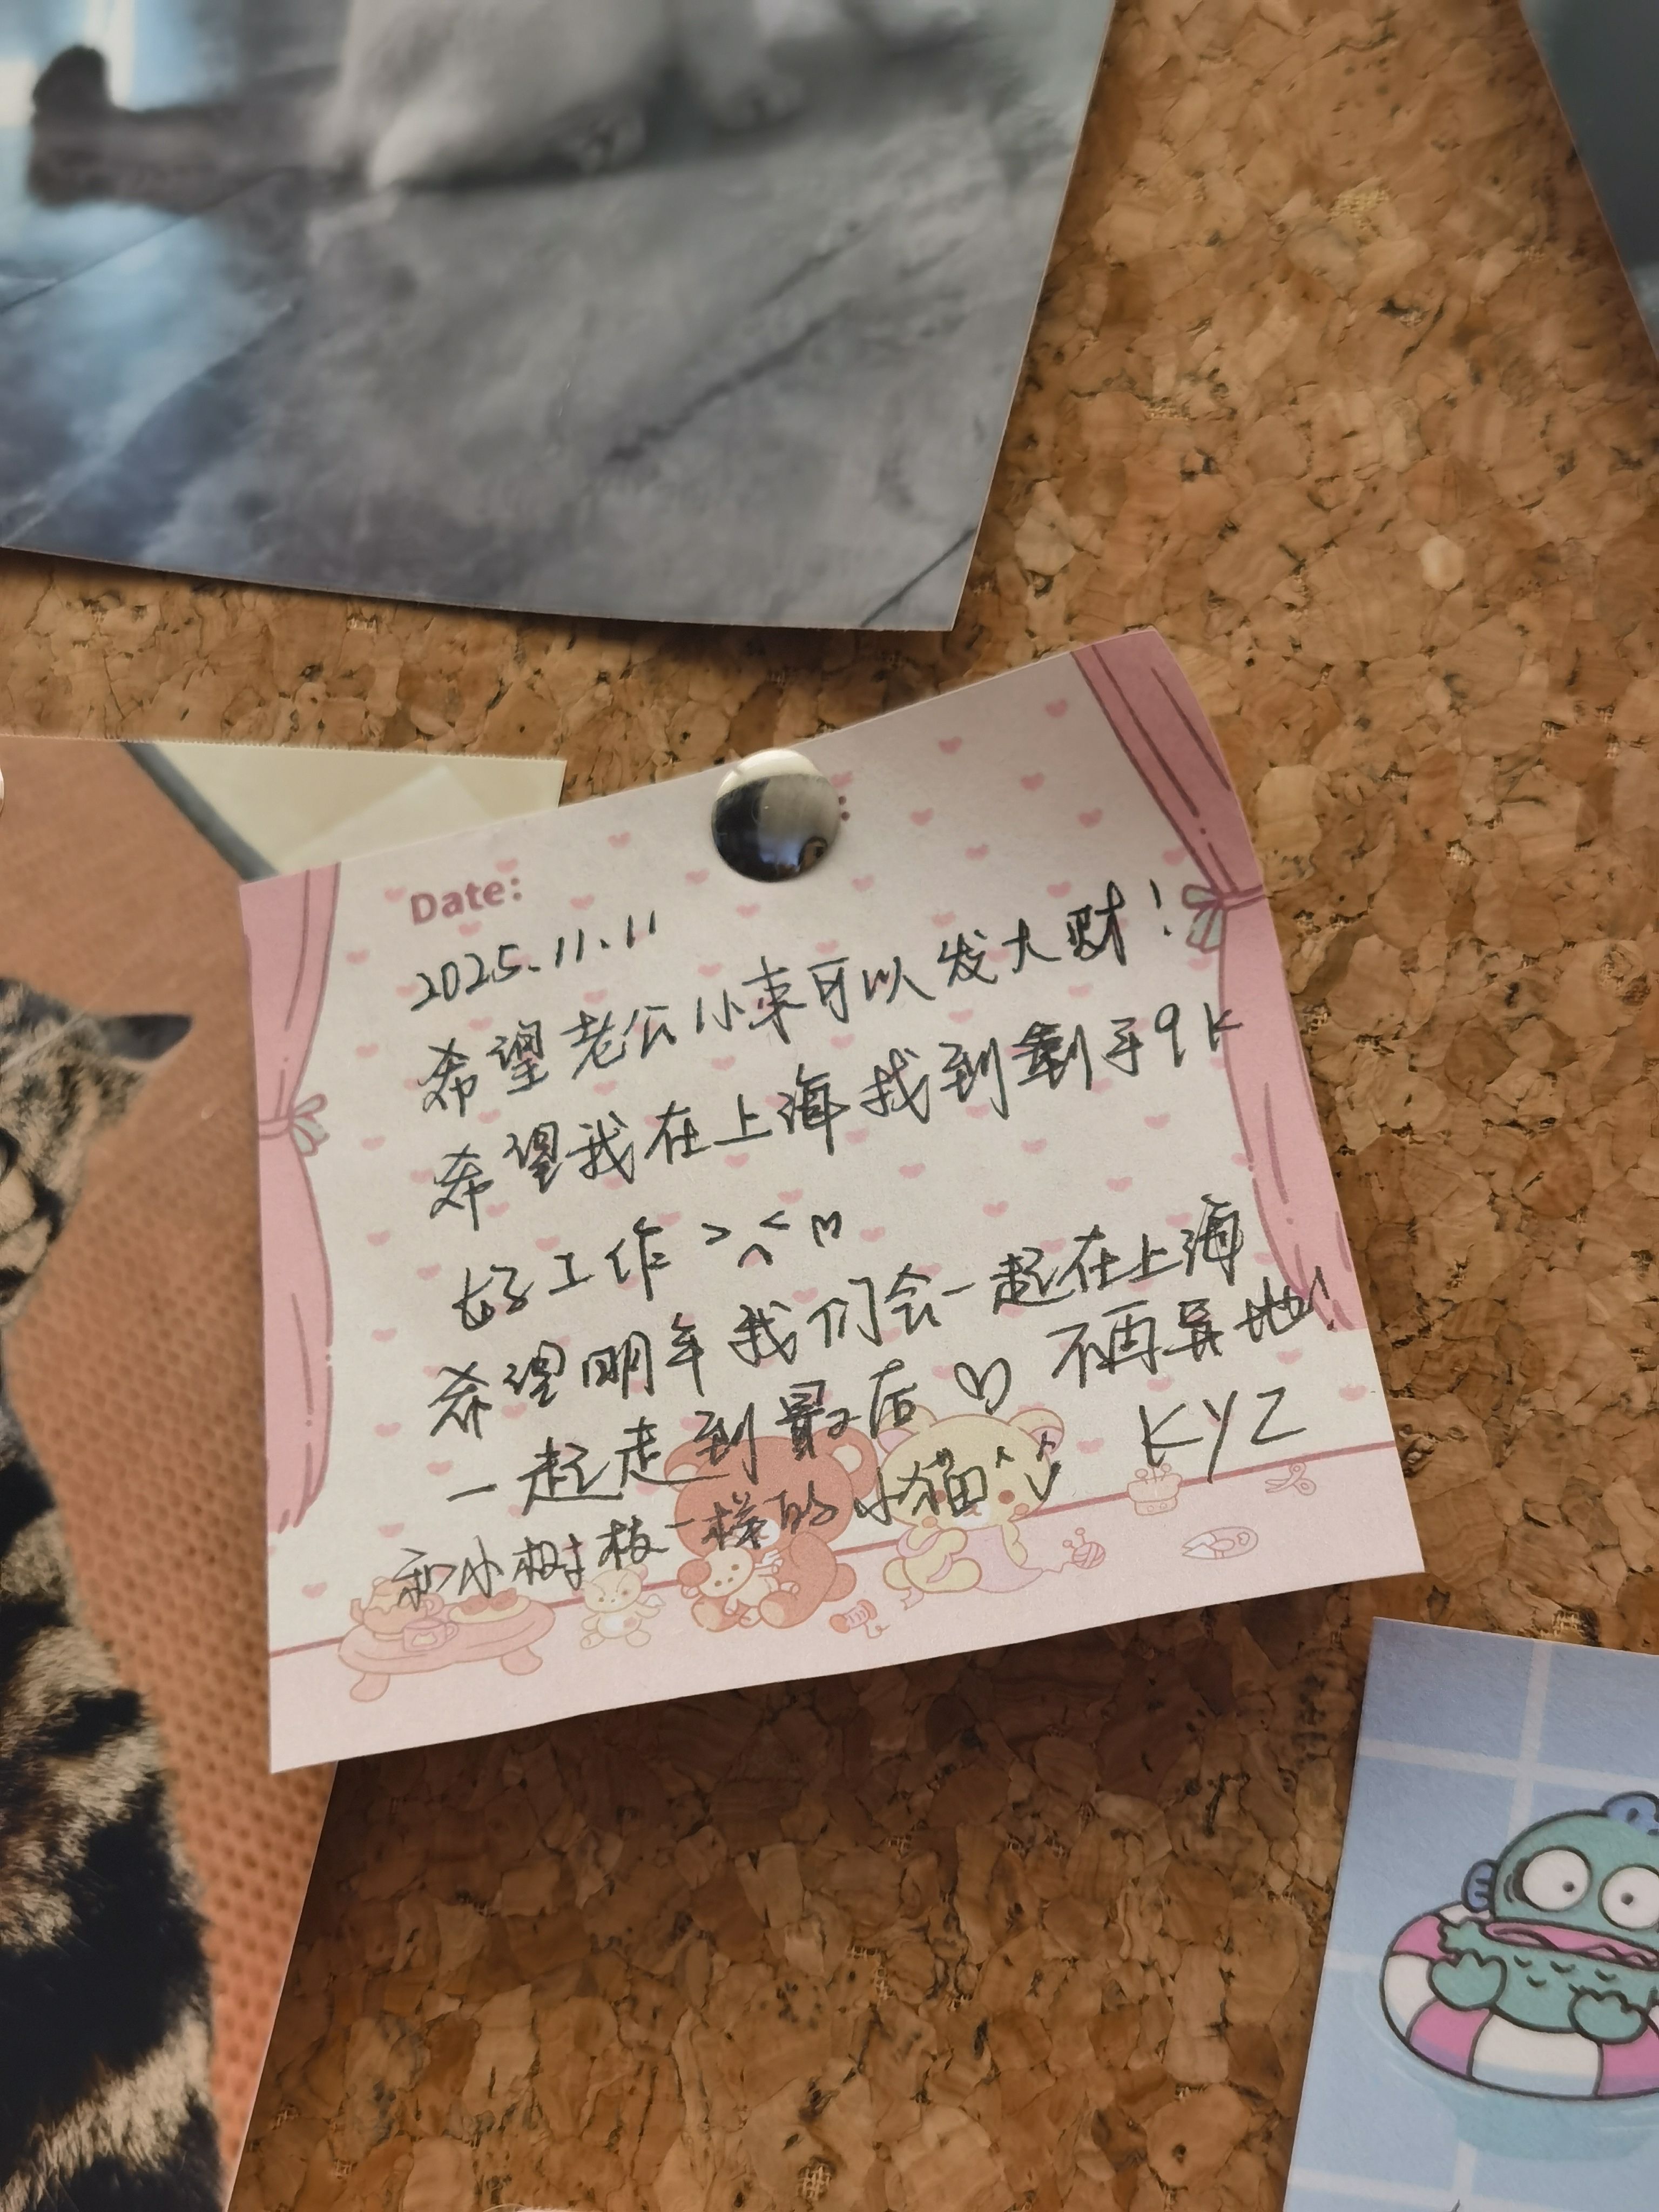 Date:
2025.11.11
希望老公小束可以发大财！
希望我在上海找到剩手9k
好工作 >^< m
希望明年我们会一起在上海
一起走到最后♡ 不再异地！
和小树枝一样的小猫 KYZ